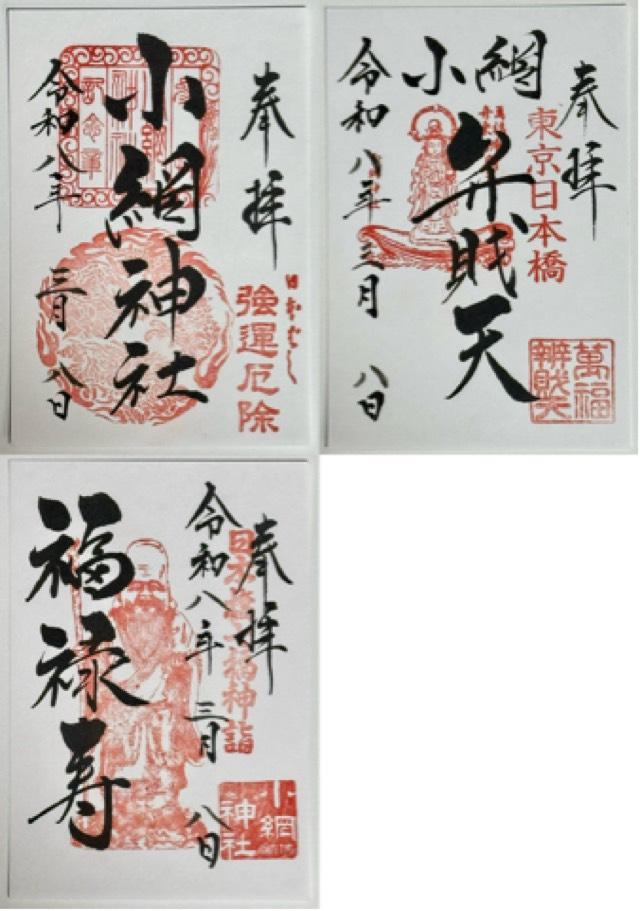 奉拝
小網神社
令和八年 三月 八日
強運厄除
奉拝
東京日本橋
小網
弁財天
令和八年 三月 八日
萬福
辨財天
奉拝
令和八年 三月 八日
福禄寿
小網
神社